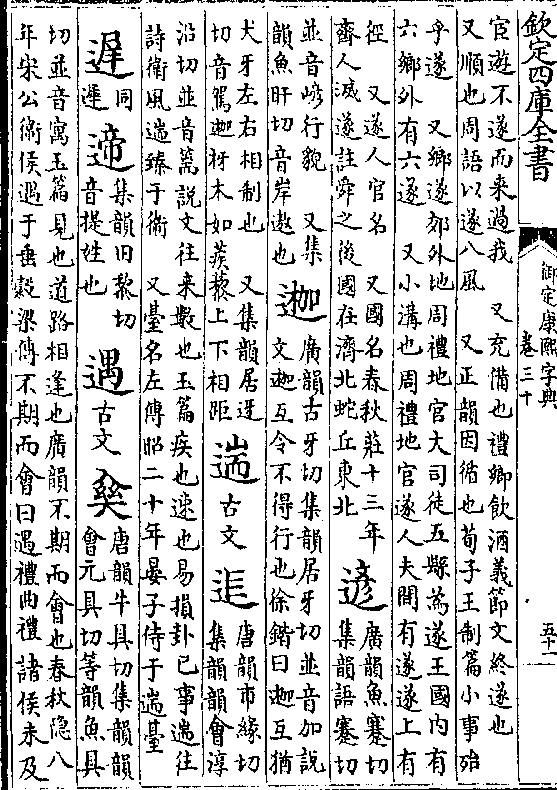 欽定四庫全書
宦遊不遂而来過我　又充備也禮鄉飲酒義節文終遂也
又順也周語以遂八風　又正韻因循也荀子王制篇小事殆
乎遂　又鄉遂郊外地周禮地官大司徒五縣為遂王國内有
六鄉外有六遂　又小溝也周禮地官遂人夫間有遂遂上有
徑　又遂人官名　又國名春秋莊十三年
齊人滅遂註舜之後國在濟北蛇丘東北
遃
廣韻魚蹇切
集韻語蹇切
並音巘行貌　又集
韻魚旰切音岸遃也
𨔣
廣韻古牙切集韻居牙切並音加說
文𨔣互令不得行也徐鍇曰𨔣互猶
犬牙左右相制也　又集韻居迓
切音駕𨔣枒木如蒺藜上下相距
遄 古文
唐韻市緣切
集韻韻會淳
沿切並音篅說文往来數也玉篇疾也速也易損卦已事遄往
詩衛風遄臻于衛　又臺名左傳昭二十年晏子侍于遄臺
遟
同
遲
遆
集韻旧黎切
音提姓也
遇 古文
唐韻牛具切集韻韻
會元具切等韻魚具
切並音寓玉篇見也道路相逢也廣韻不期而會也春秋隐八
年宋公衛侯遇于垂穀梁傳不期而會曰遇禮曲禮諸侯未及
御定康熙字典
卷三十
五十一